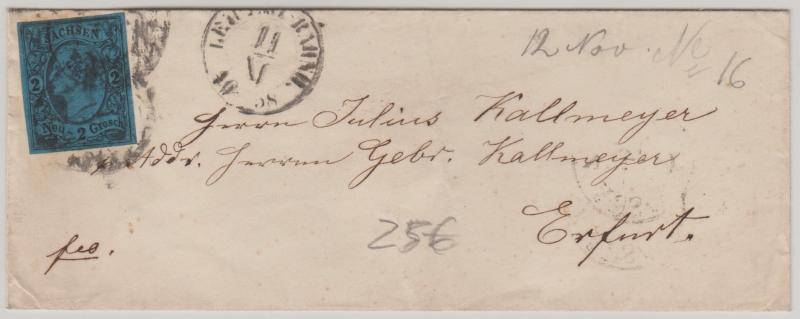 SACHSEN
2 2
Neu 2 Grosch
LEIPZIG BAHNH.
11
V
58
12 Nov. No 16
Herrn Julius Kallmeyer
Addr. Herren Gebr. Kallmeyer
Erfurt.
fco.
256